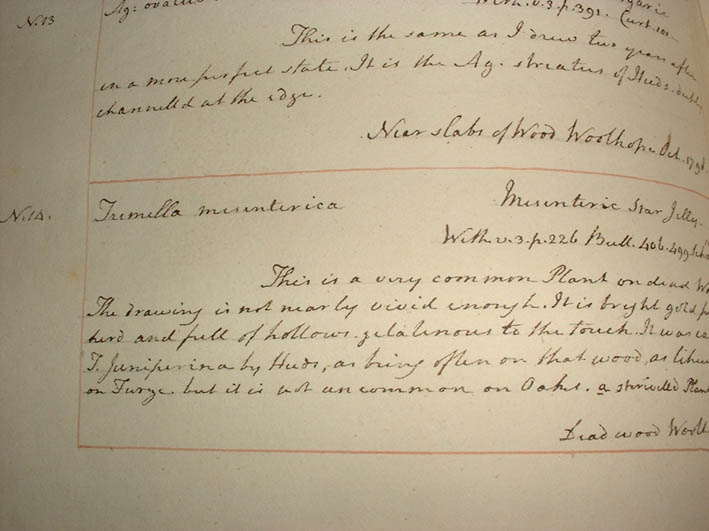 N.13
Ag: ovatus
With. v. 3. p. 391. Curt.
This is the same as I drew two years after
in a more perfect state. It is the Ag. striatus of Huds. doubly
channell'd at the edge.
Near slabs of Wood Woolhope Oct. 179
N. 14.
Tremella mesenterica
Mesenteric Star Jelly.
With. v. 3. p. 226 Bull. 406. 499
This is a very common Plant on dead W
The drawing is not nearly vivid enough. It is bright gold
and full of hollows. gelatinous to the touch. It was ca
T. Juniperina by Huds, as being often on that wood, as likew
on Furze. but it is not uncommon on Oaks. a Plan
Dead wood Wool